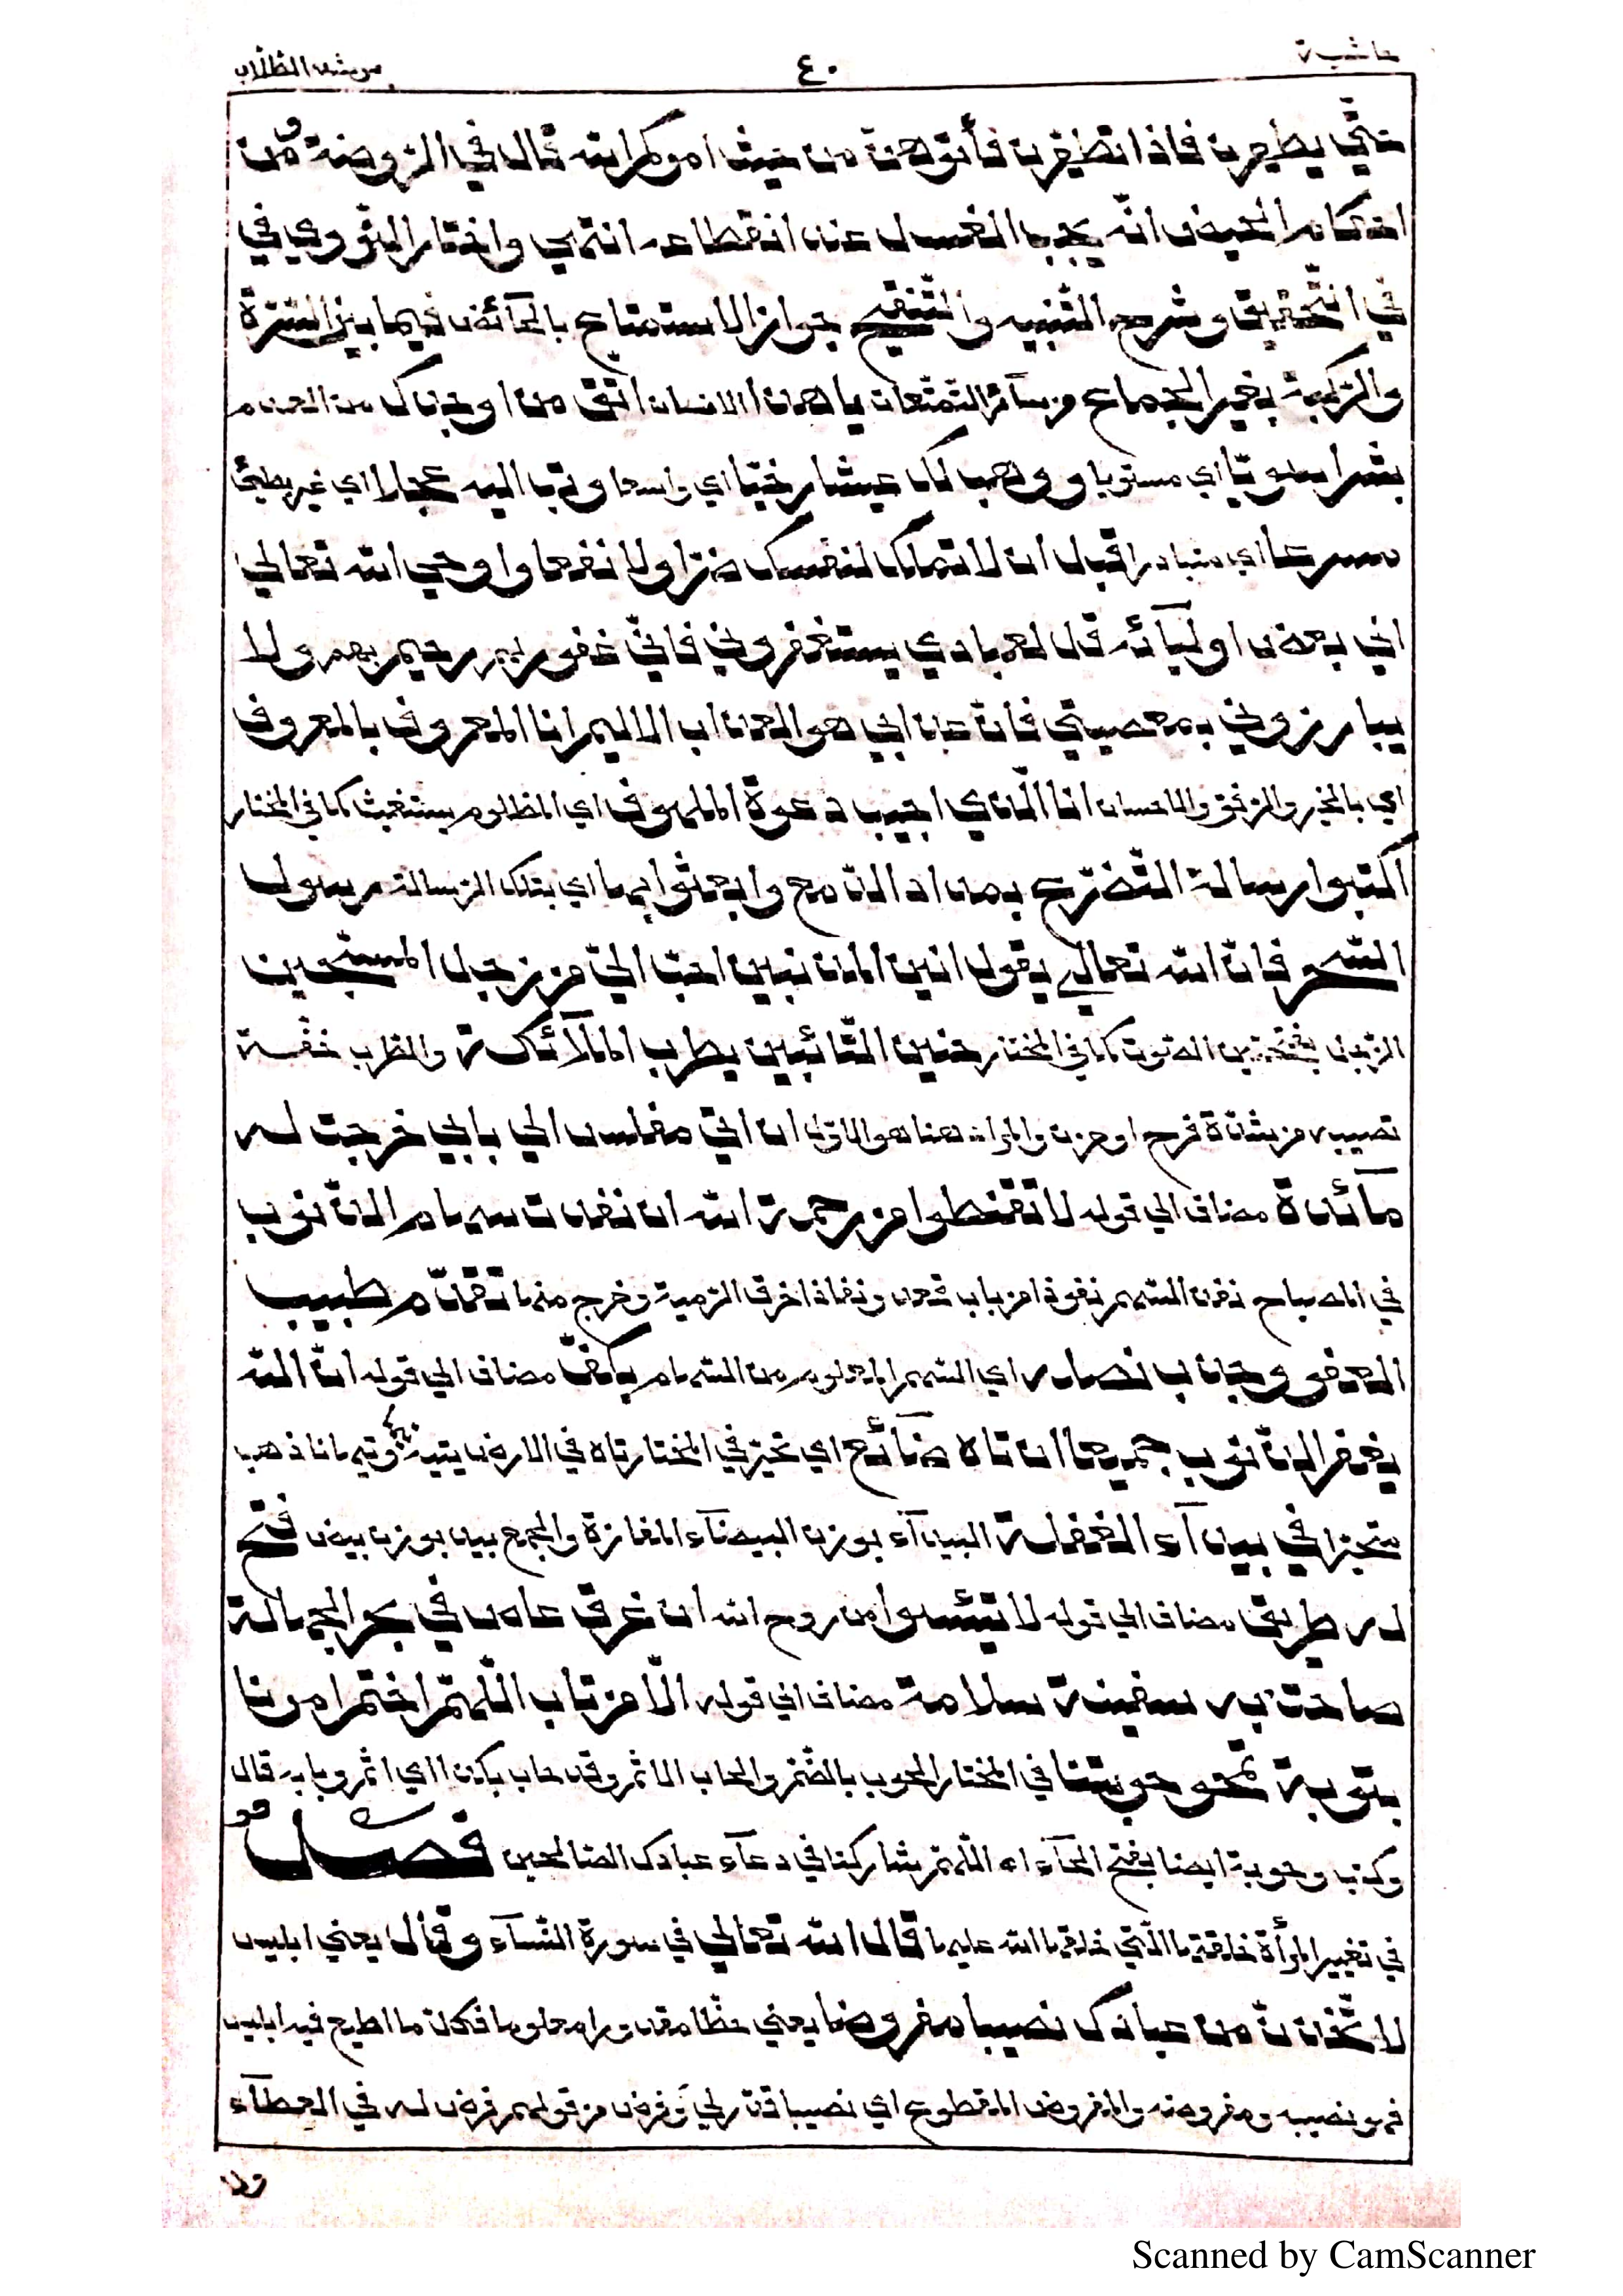 حاشية ٤٠ مرشد الطلاب
حتّي يطهرن فاذا تطهّرن فأتوهنّ من حيث امركم الله قال في الرّوضة ومن
احكام الحيض انّه يجب الغسل عند انقطاعه انتهي واختار النّووي في
في التّحقيق وشرح التّنبيه والتّنقيح جواز الاستمتاع بالحآئض فيما بين السّرّة
والرّكبة بغير الجماع من سآئر التمتّعات يا هذا الانسان اتّق من اوجدك من العدم
بشرا سويّا اي مستويا ووهب لك عيشا رخيّا اي واسعا وتب اليه عجلا اي غير بطئ
سرعا اي متبادرا قبل ان لا تملك لنفسك ضرّا ولا نفعا واوحي الله تعالي
الي بعض اوليآئه قل لعبادي يستغفروني فانّي غفور لهم رحيم بهم ولا
يبارزوني بمعصيتي فانّ عذابي هو العذاب الاليم انا المعروف بالمعروف
اي بالخير والرّفق والاحسان انا الّذي اجيب دعوة الملهوف اي المظلوم يستغيث كما في المختار
اكتبوا رسالة التّضرّع بمداد الدّمع وابعثوا بها اي بتلك الرّسالة رسول
السّحر فانّ الله تعالي يقول انين المذنبين احبّ اليّ من زجل المسبّحين
الزّجل بفتحتين الصّوت كما في المختار حنين التّائبين يطرب الملآئكة والطّرب خفّة
تصيبه من شدّة فرح او حزن والمراد هنا هو الاوّل ان اتي مفلس الي بابي خرجت له
مآئدة مضاف الي قوله لا تقنطوا من رحمة الله ان نفذت سهام الذّنوب
في المصباح نفذ السّهم نفوذا من باب قعد ونفاذا خرق الرّمية وخرج منها تقدّم طبيب
العفو وجذب نصله اي السّهم المعلوم من السّهام بكفّ مضاف الي قوله انّ الله
يغفر الذّنوب جميعا ان تاه ضآئع اي تحيّر في المختار تاه في الارض يتيه وتيهانا ذهب
متحيّرا في بيدآء الغفلة البيدآء بوزن البيضآء المفازة والجمع بيد بوزن بيض فتح
له طريق مضاف الي قوله لا تيئسوا من روح الله ان غرق عاص في بحر الجهالة
صاحت به سفينة سلامة مضاف الي قوله الّا من تاب اللّهمّ اختم امورنا
بتوبة تمحو حوبتنا في المختار الحوب بالضّمّ والحاب الاثم وقد حاب بكذا اي اثم وبابه قال
وكتب وحوبة ايضا بفتح الحآء اه اللّهمّ شاركنا في دعآء عبادك الصّالحين فصل
في تغيير المرأة خلقتها الّتي خلقها الله عليها قال الله تعالي في سورة النّسآء وقال يعني ابليس
لاتّخذنّ من عبادك نصيبا مفروضا يعني حظّا مقدورا معلوما فكلّ ما اطيع فيه ابليس
فهو نصيبه ومفروضه والمفروض المقطوع اي نصيبا قدّر لي وفرض من قولهم فرض له في العطآء
Scanned by CamScanner